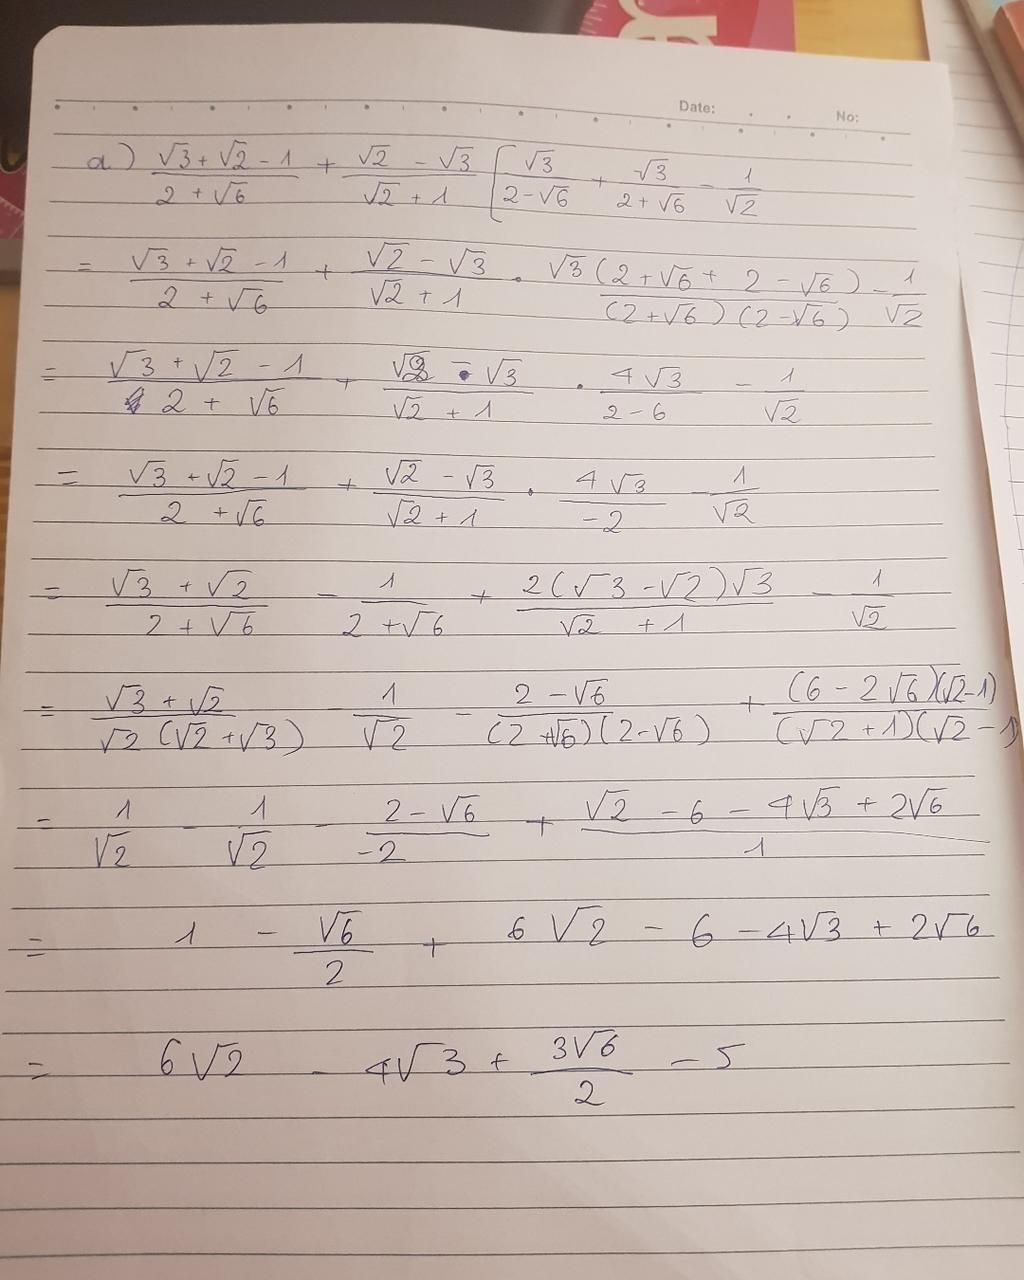 Date: No:
a) (√3 + √2 - 1)/(2 + √6) + (√2 - √3)/(√2 + 1) [ √3/(2 - √6) + √3/(2 + √6) - 1/√2
= (√3 + √2 - 1)/(2 + √6) + (√2 - √3)/(√2 + 1) · √3(2 + √6 + 2 - √6)/((2 + √6)(2 - √6)) - 1/√2
= (√3 + √2 - 1)/(2 + √6) + (√2 - √3)/(√2 + 1) · 4√3/(2 - 6) - 1/√2
= (√3 + √2 - 1)/(2 + √6) + (√2 - √3)/(√2 + 1) · 4√3/(-2) - 1/√2
= (√3 + √2)/(2 + √6) - 1/(2 + √6) + 2(√3 - √2)√3/(√2 + 1) - 1/√2
= (√3 + √2)/(√2(√2 + √3)) - 1/√2 - (2 - √6)/((2 + √6)(2 - √6)) + (6 - 2√6)(√2 - 1)/((√2 + 1)(√2 - 1)
= 1/√2 - 1/√2 - (2 - √6)/(-2) + (√2 - 6 - 4√3 + 2√6)/1
= 1 - √6/2 + 6√2 - 6 - 4√3 + 2√6
= 6√2 - 4√3 + 3√6/2 - 5